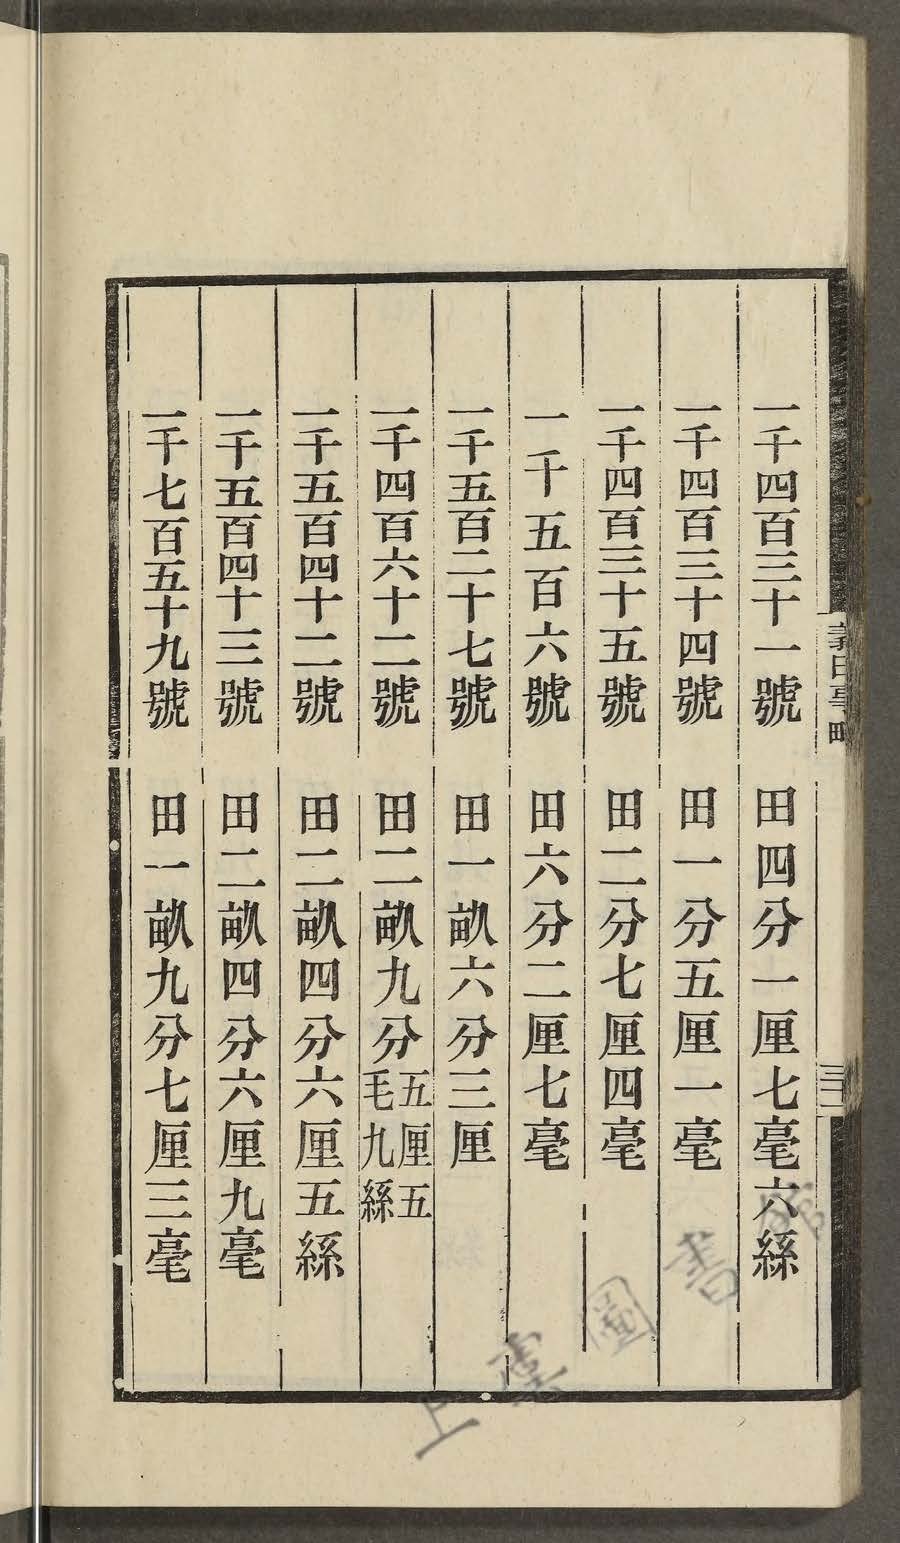 義田事略
三十一
一千四百三十一號 田四分一厘七毫六絲
一千四百三十四號 田一分五厘一毫
一千四百三十五號 田二分七厘四毫
一千五百六號 田六分二厘七毫
一千五百二十七號 田一畝六分三厘
一千四百六十二號 田二畝九分五厘五毛九絲
一千五百四十二號 田二畝四分六厘五絲
一千五百四十三號 田二畝四分六厘九毫
一千七百五十九號 田一畝九分七厘三毫
上虞圖書館